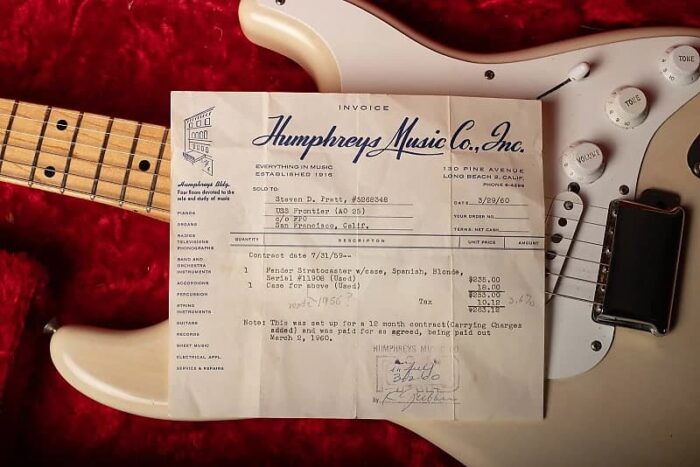 INVOICE
Humphreys Music Co., Inc.
EVERYTHING IN MUSIC
ESTABLISHED 1916
130 PINE AVENUE
LONG BEACH 2, CALIF.
PHONE 6-4289
Humphreys Bldg.
Four floors devoted to the
sale and study of music
SOLD TO:
Steven D. Pratt, #5268348
USS Frontier (AD 25)
c/o FPO
San Francisco, Calif.
DATE 3/29/60
YOUR ORDER NO.
TERMS: NET CASH
QUANTITY DESCRIPTION UNIT PRICE AMOUNT
Contract date 7/31/59--
1 Fender Stratocaster w/case, Spanish, Blonde,
Serial #11908 (Used) $235.00
1 Case for above (Used) 18.00
$253.00
1956? Tax 10.12
$263.12
Note: This was set up for a 12 month contract(Carrying Charges
added) and was paid for as agreed, being paid out
March 2, 1960.
PIANOS
ORGANS
RADIOS
TELEVISIONS
PHONOGRAPHS
BAND AND
ORCHESTRA
INSTRUMENTS
ACCORDIONS
PERCUSSION
STRING
INSTRUMENTS
GUITARS
RECORDS
SHEET MUSIC
ELECTRICAL APPL.
SERVICE & REPAIRS
HUMPHREYS MUSIC CO
in full
3-2-60
By
VOLUME
TONE
TONE